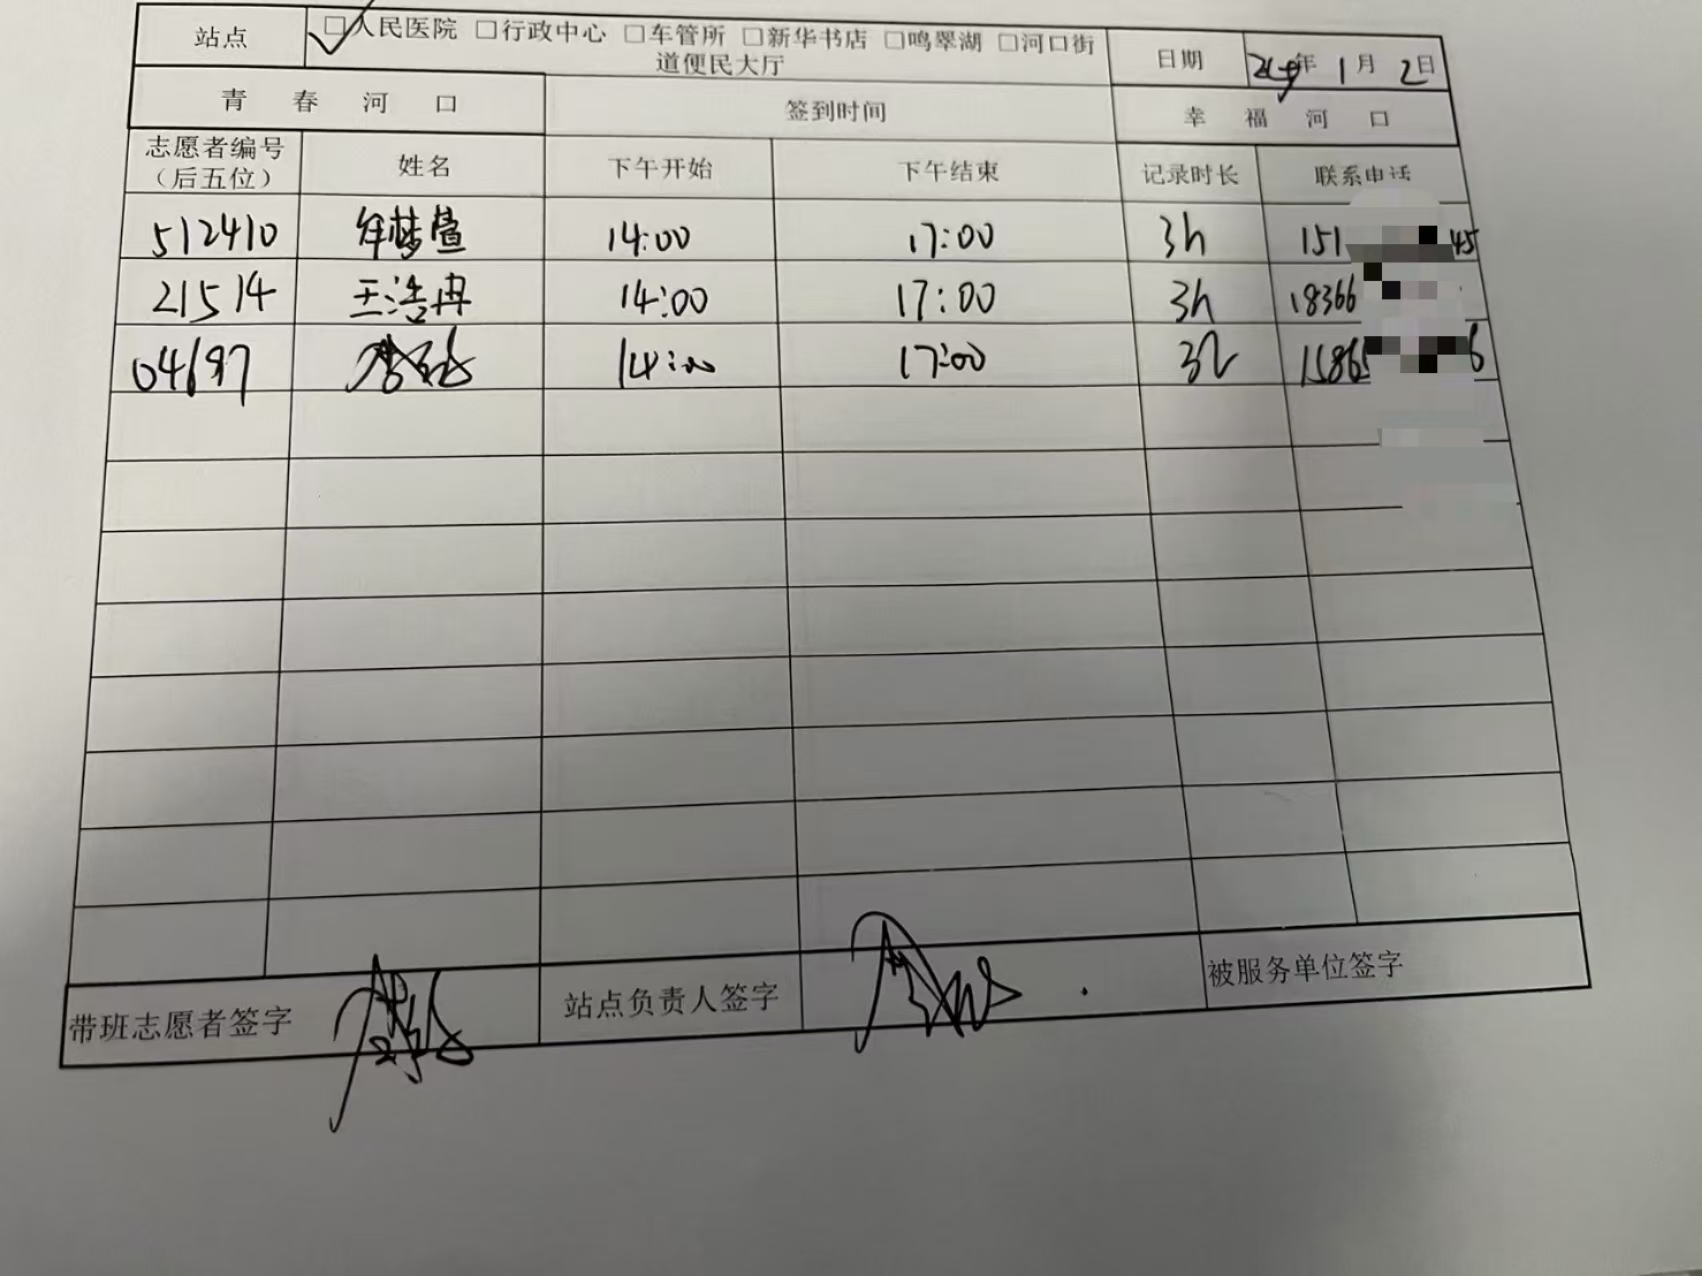 站点 □人民医院 □行政中心 □车管所 □新华书店 □鸣翠湖 □河口街 日期 24年 1月 2日
道便民大厅
青春河口 签到时间 幸福河口
志愿者编号 姓名 下午开始 下午结束 记录时长 联系电话
（后五位）
512410 牟梦萱 14:00 17:00 3h 151 45
21514 王浩冉 14:00 17:00 3h 18366
04697 14:00 17:00 3h 15865 6
带班志愿者签字 站点负责人签字 被服务单位签字